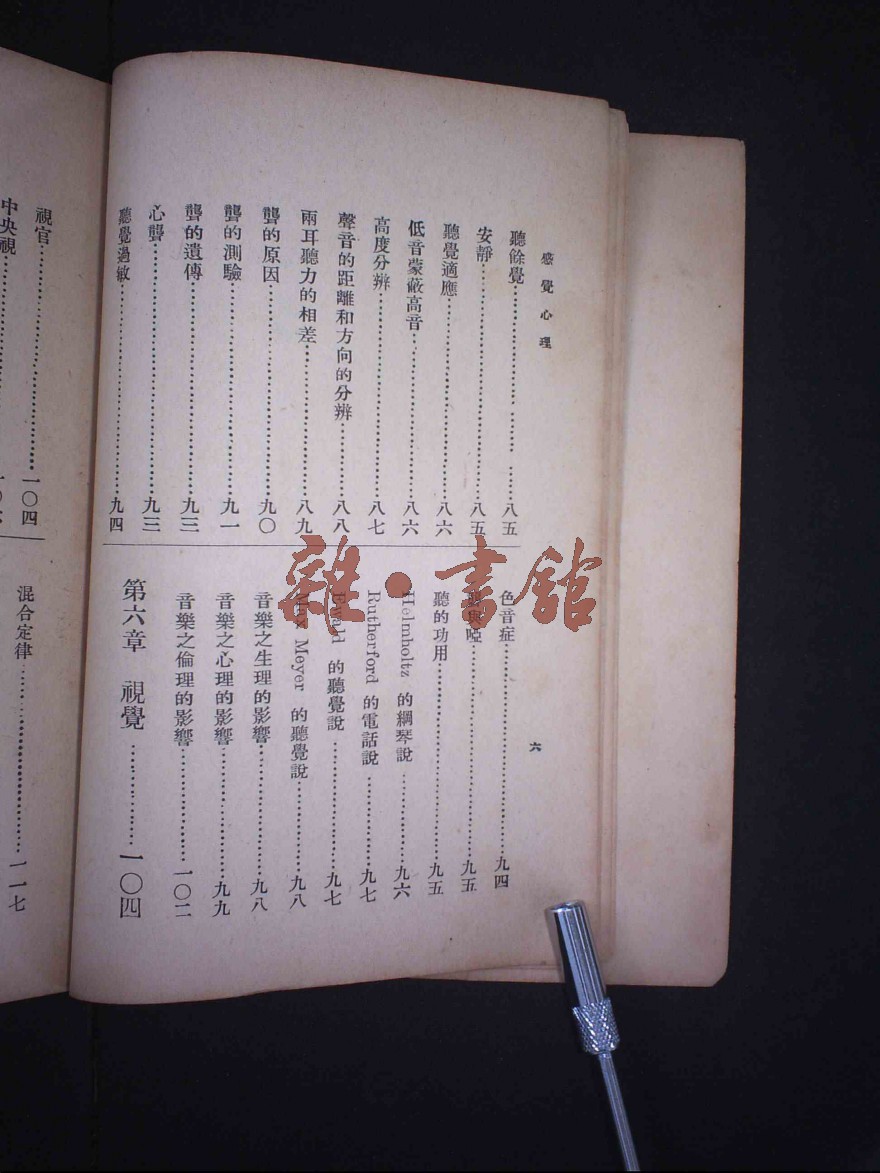 感覺心理
六
聽餘覺……………………… ……八五
安靜………………………………八五
聽覺適應…………………………八六
低音蒙蔽高音……………………八六
高度分辨…………………………八七
聲音的距離和方向的分辨………八八
兩耳聽力的相差…………………八九
聾的原因…………………………九〇
聾的測驗…………………………九一
聾的遺傳…………………………九三
心聾………………………………九三
聽覺過敏…………………………九四
色音症……………………………九四
與啞……………………………九五
聽的功用…………………………九五
Helmholtz 的鋼琴說……………九六
Rutherford 的電話說……………九七
Ewald 的聽覺說…………………九七
Max Meyer 的聽覺說……………九八
音樂之生理的影響………………九八
音樂之心理的影響………………九九
音樂之倫理的影響………………一〇二
第六章 視覺……………一〇四
視官………………………………一〇四
中央視……………………………一〇
混合定律…………………………一一七
雜·書館